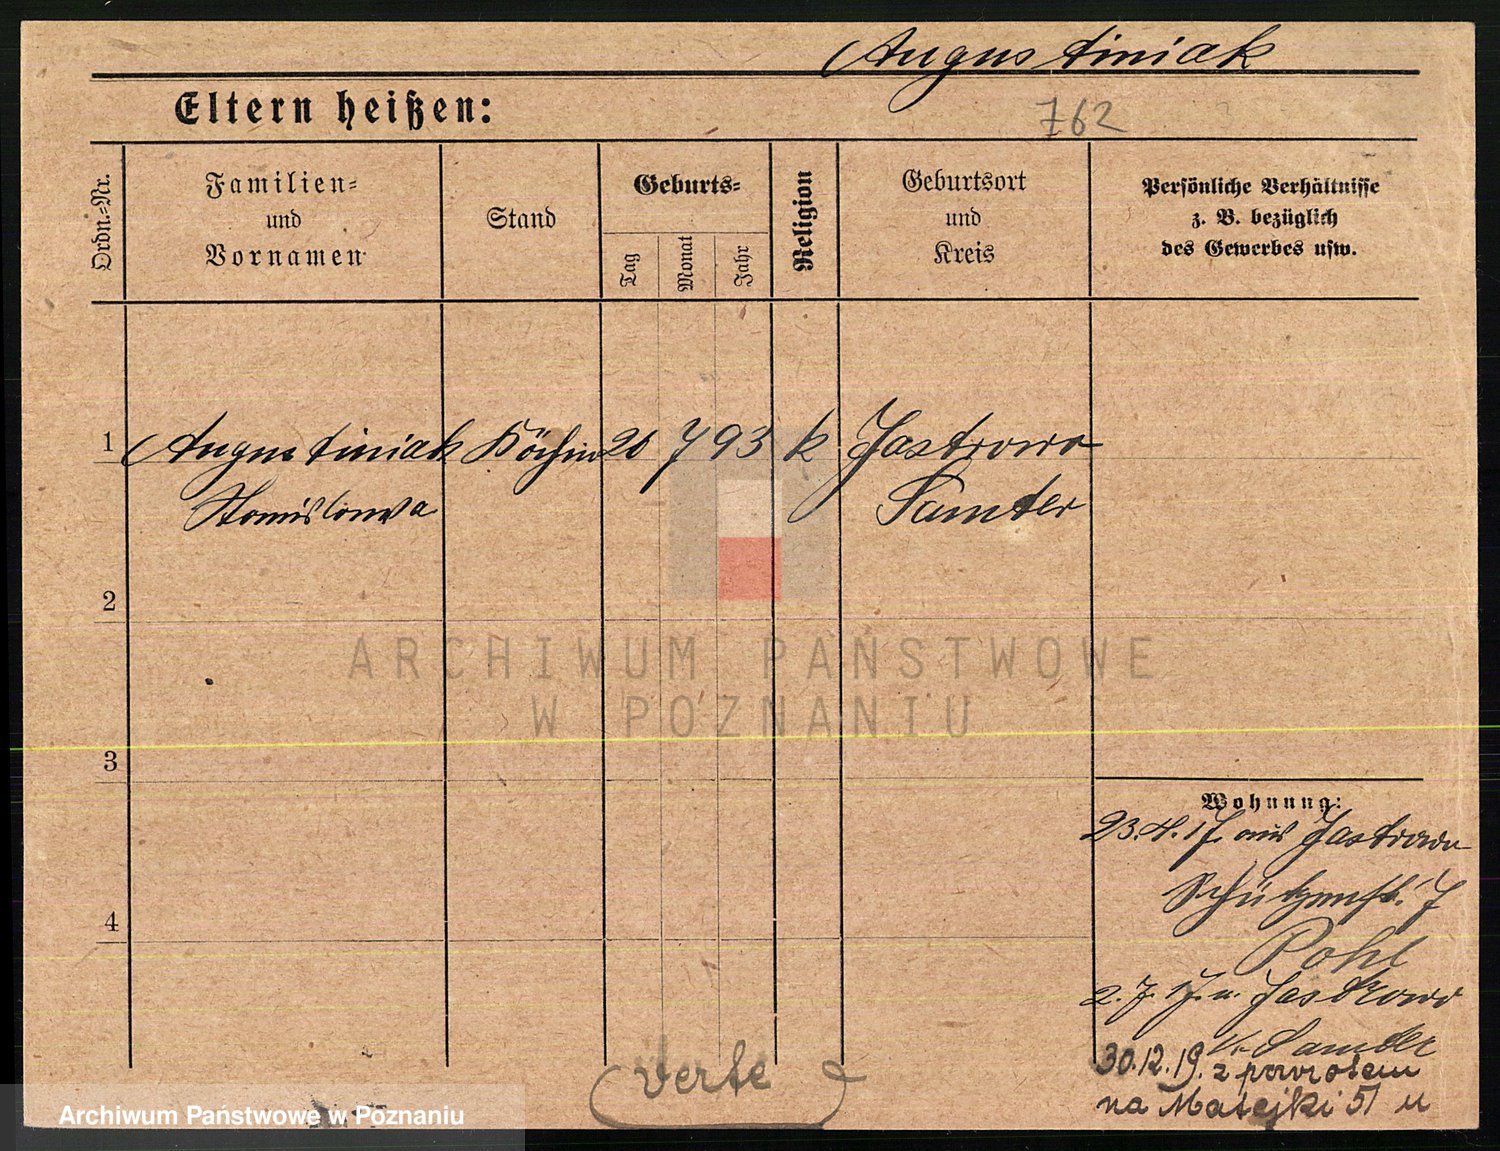 Augustiniak
Eltern heißen:
762
Ordn.=Nr.
Familien=
und
Vornamen
Stand
Geburts=
Tag
Monat
Jahr
Religion
Geburtsort
und
Kreis
Persönliche Verhältnisse
z. B. bezüglich
des Gewerbes usw.
1 Augustiniak Köchin 20 7 93 k Jastrowo
Stanislawa Samter
2
ARCHIWUM PAŃSTWOWE
W POZNANIU
3
Wohnung:
23.4.17. aus Jastrowo
Schützenstr. 7
4
Pohl
2.7.17. n. Jastrowo
Kr. Samter
30.12.19. z powrotem
na Matejki 51 u
verte
Archiwum Państwowe w Poznaniu